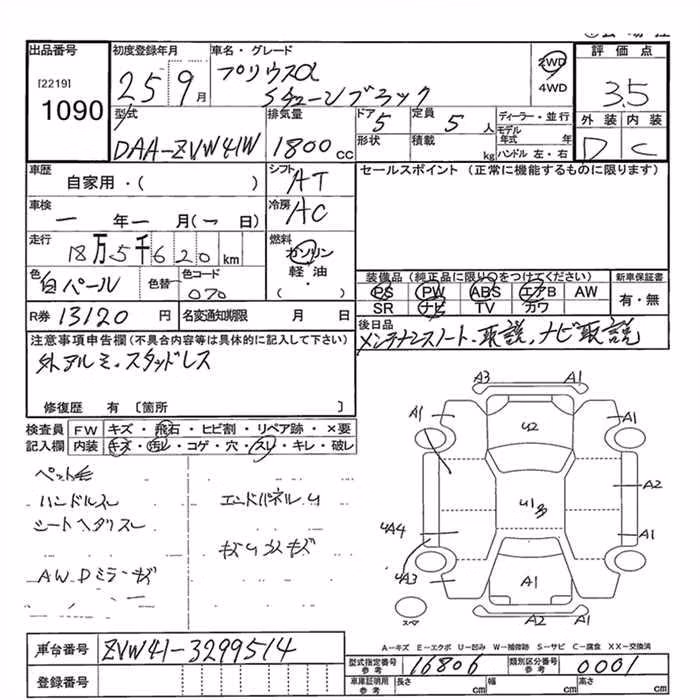 出品番号 初度登録年月 車名・グレード 評価点
[2219] 25 9月 プリウスα 2WD 3.5
1090 Sチューンブラック 4WD
型式 排気量 ドア 5 定員 5 人 ディーラー・並行 外装 内装
DAA-ZVW41W 1800 cc 形状 積載 kg モデル年式 年 D C
ハンドル 左・右
車歴 シフト セールスポイント (正常に機能するものに限ります)
自家用・( ) AT
車検 冷房
一年一月(一日) AC
走行 燃料
18万5千620km ガソリン
色 白パール 色替 色コード 070 軽油 ( ) 装備品 (純正品に限り○をつけてください) 新車保証書
PS PW ABS エアB AW 有・無
SR ナビ TV カワ
R券 13120 円 名変通知期限 月 日 後日品
メンテナンスノート、取説、ナビ取説
注意事項申告欄(不具合内容等は具体的に記入して下さい)
外アルミ、スタッドレス
修復歴 有 〔箇所 〕
検査員 FW キズ・飛石・ヒビ割・リペア跡・×要
記入欄 内装 キズ・汚レ・コゲ・穴・スレ・キレ・破レ
ペット毛
ハンドルスレ エンドパネルU
シートヘタリスレ
AWDミラーキズ
A3 A1
A1 U2 A1
A2
U1多
UA4 A1
UA3
A1
スペア A2 A1
車台番号 ZVW41-3299514
A-キズ E-エクボ U-凹み W-補修跡 S-サビ C-腐食 XX-交換済
型式指定番号 参考 16806 類別区分番号 参考 0001
登録番号 車庫証明用 参考 長さ cm 幅 cm 高さ cm